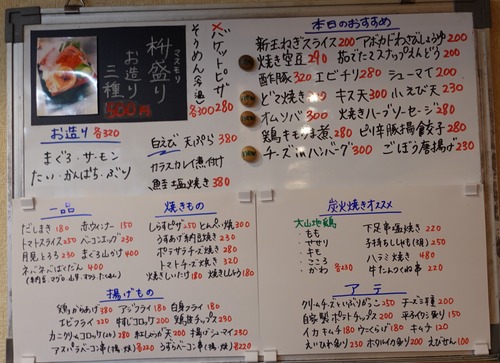 枡盛り
マスモリ
お造り
三種
480円
×バゲットピザ
そうめん(冷・温)
各300 280
お造り 各320
まぐろ・サーモン
たい・かんぱち・ぶり
白えび 天ぷら 380
カラスカレイ煮付
塩焼き 380
本日のおすすめ
新玉ねぎスライス 200 アボカドわさびしょうゆ 200
焼き空豆 290 茹でたてスナップえんどう 200
酢豚 320 エビチリ 280 シューマイ 200
キス天 300 小えび天 230
オムソバ 300 焼きハーブソーセージ 280
鶏キモうま煮 280 ピリ辛豚揚餃子 280
チーズinハンバーグ 300 ごぼう唐揚げ 230
一品
だしまき 180 赤ウィンナー 150
トマトスライス 250 ベーコンエッグ 230
月見とろろ 230 まぐろ山かけ 400
ネバネバばくだん 400
焼きもの
しらすピザ 250 とんぺい焼 300
うすあげ納豆焼き 230
ポテサラチーズ焼き 280
トマトチーズ焼き 320
焼きしいたけ 180 焼きししゃも 180
揚げもの
鶏からあげ 380 アジフライ 180 白身フライ 180
エビフライ 220 牛すじコロッケ 200 鶏皮チップス 230
カニクリームコロッケ 280 紅しょうが天 200 揚げシューマイ 230
アスパラベーコン串(揚・焼) 各220 うずらベーコン串(揚・焼) 各220
炭火焼きオススメ
大山地鶏
もも
せせり
キモ
こころ
かわ 各230
下足串塩焼き 220
子持ちししゃも(焼) 250
ハラミ焼き 480
牛たんつくね串 220
アテ
クリームチーズといぶりがっこ 250 チーズ3種 200
自家製ポテトチップス 200 平子イワシ炙り 150
イカキムチ 180 うにくらげ 180 キムチ 120
えいひれ炙り 230 ホタルイカ炙り 200 えびせん 100